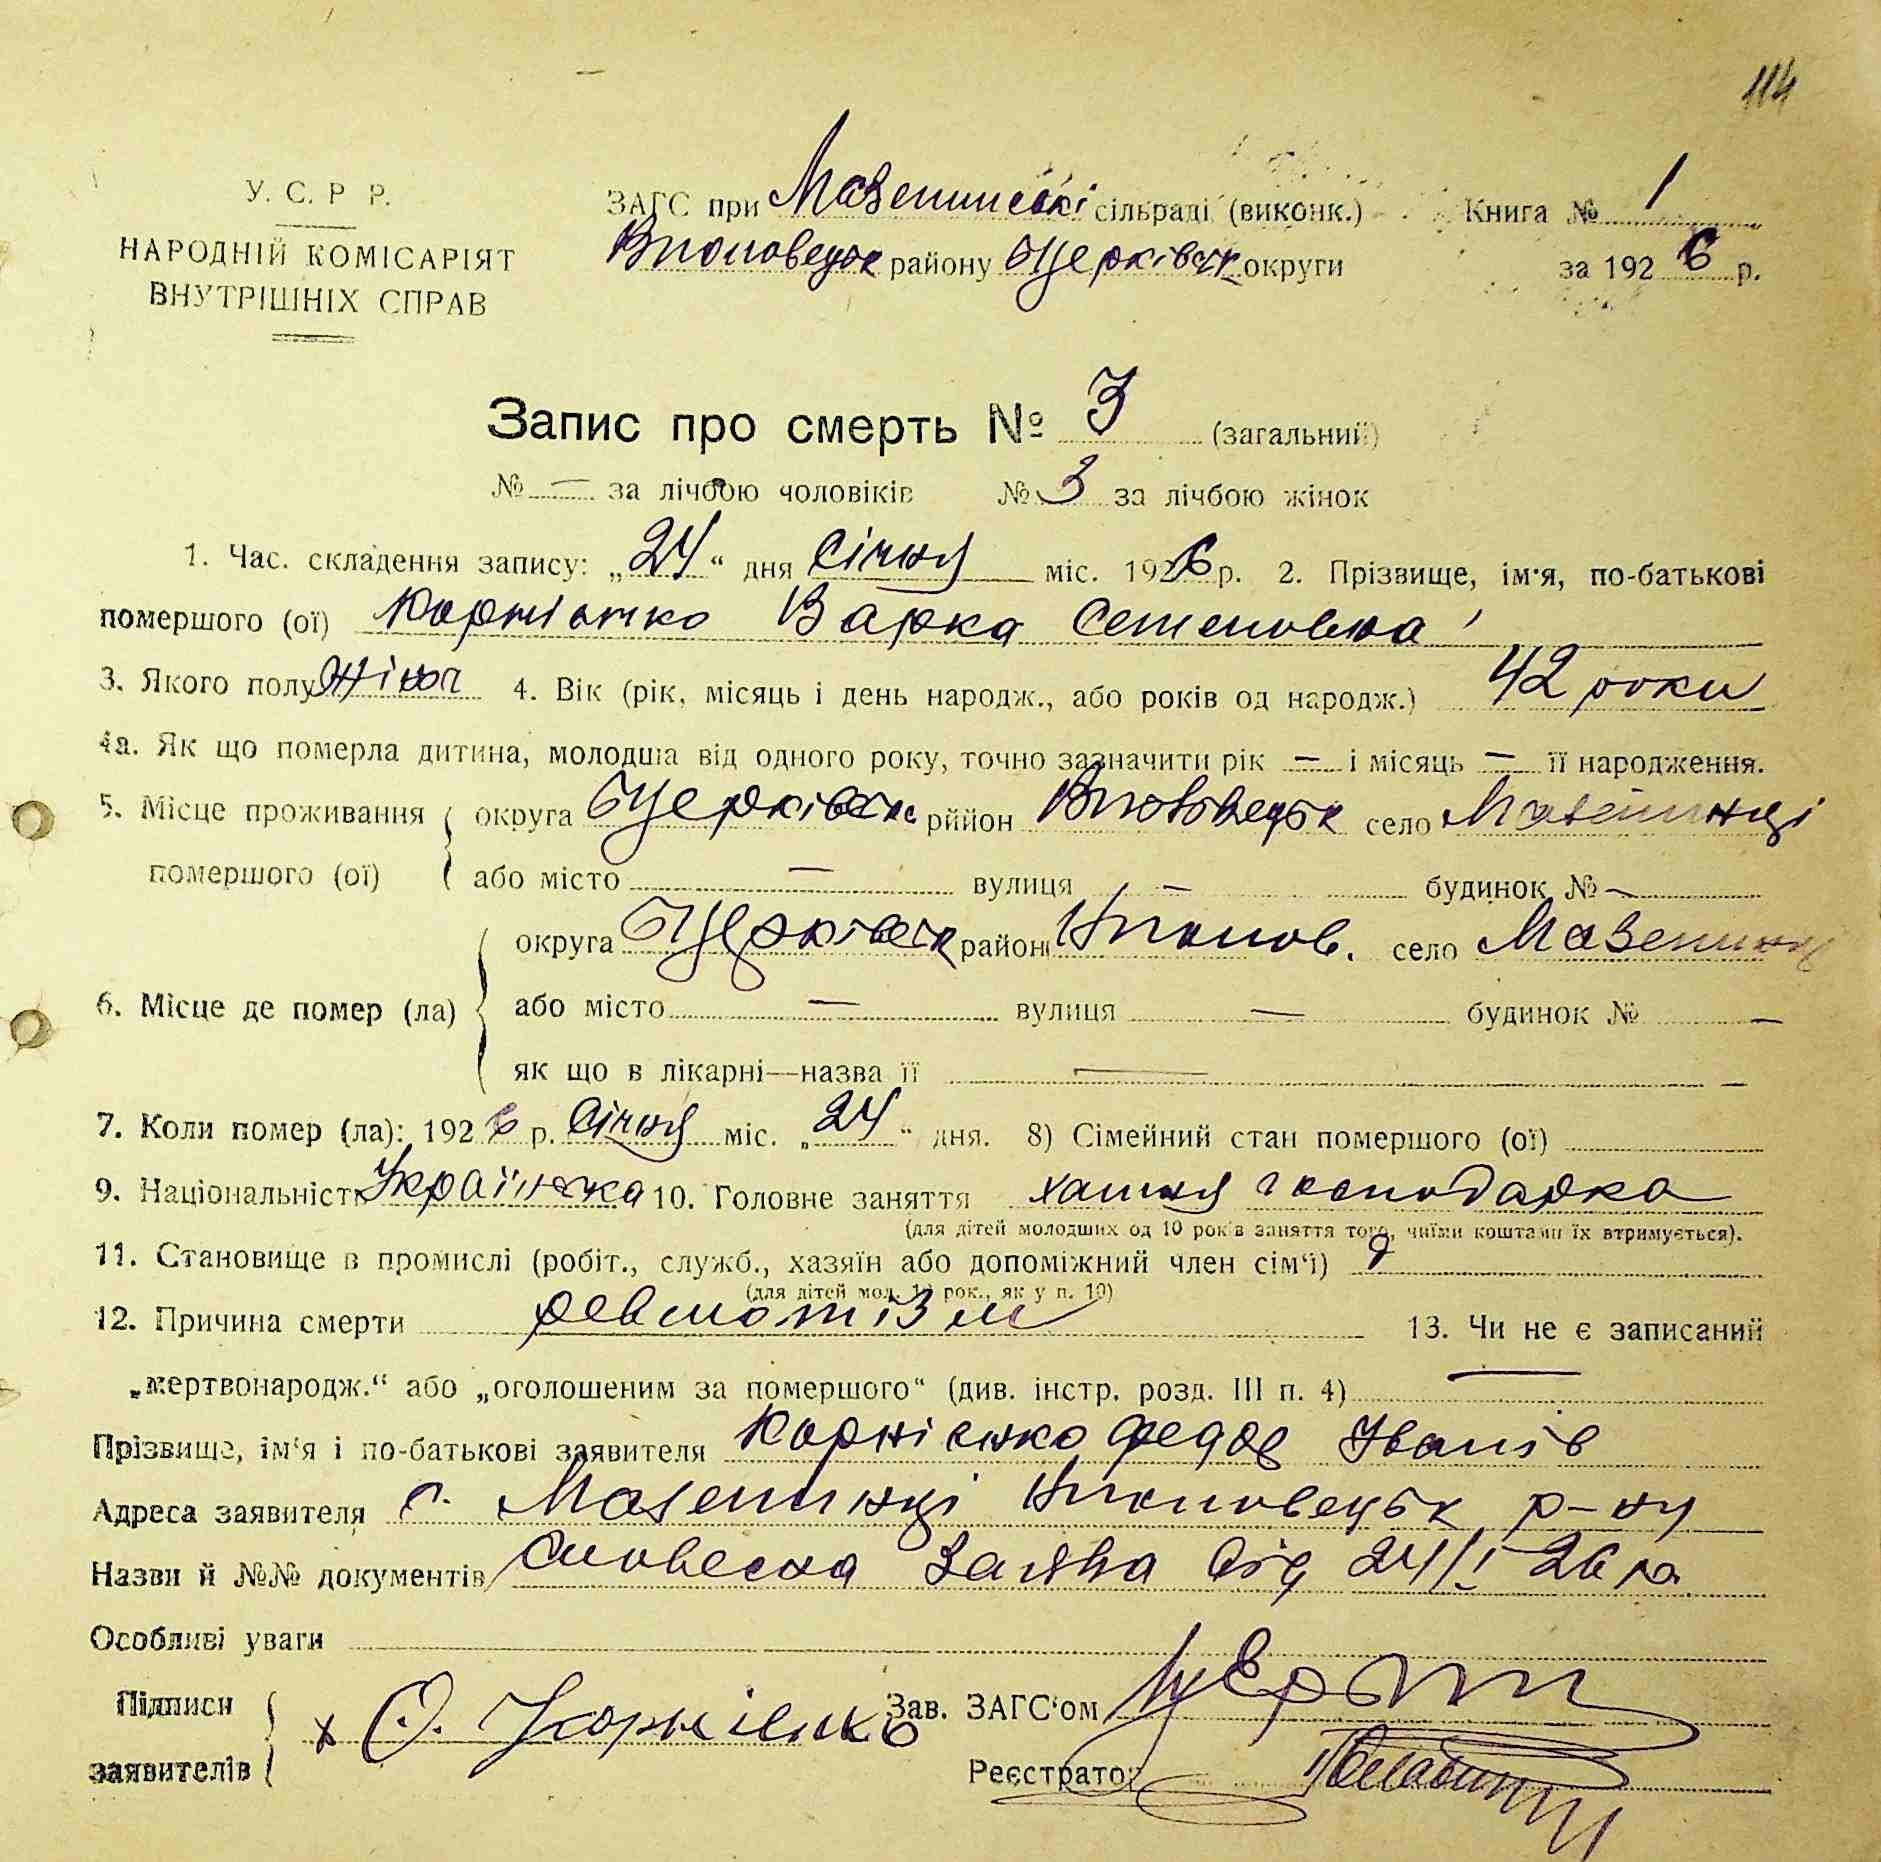 114
У. С. Р Р.
НАРОДНІЙ КОМІСАРІЯТ
ВНУТРІШНІХ СПРАВ
ЗАГС при Мазепинські сільраді (виконк.) Книга № 1
району Бцерківськ округи за 1926 р.
Запис про смерть № 3 (загальний)
№ — за лічбою чоловіків № 3 за лічбою жінок
1. Час. складення запису: „24“ дня Січня міс. 1926 р. 2. Прізвище, ім'я, по-батькові
помершого (ої) Корнієнко Варка Семеновна
3. Якого полу жіноч 4. Вік (рік, місяць і день народж., або років од народж.) 42 роки
4а. Як що померла дитина, молодша від одного року, точно зазначити рік — і місяць — її народження.
5. Місце проживання округа Бцерківськ рййон село Мазепинці
помершого (ої) або місто — вулиця — будинок № —
округа Бцерківськ район село Мазепинці
6. Місце де помер (ла) або місто — вулиця — будинок № —
як що в лікарні—назва її — —
7. Коли помер (ла): 1926 р. Січня міс. „24“ дня. 8) Сімейний стан помершого (ої)
9. Національність Українка 10. Головне заняття хатня господарка
(для дітей молодших од 10 років заняття того, чиїми коштами їх втримується).
11. Становище в промислі (робіт., служб., хазяїн або допоміжний член сім'ї)
(для дітей мол. 10 рок., як у п. 10)
12. Причина смерти ревматізм 13. Чи не є записаний
„мертвонародж.“ або „оголошеним за помершого“ (див. інстр. розд. III п. 4) —
Прізвище, ім'я і по-батькові заявителя Корнієнко Федор Іванів
Адреса заявителя с. Мазепинці р-ну
Назви й №№ документів Словесна Заява від 24/I 26 р.
Особливі уваги
Підписи
заявителів х Ф. Корнієнко Зав. ЗАГС'ом
Реєстратор